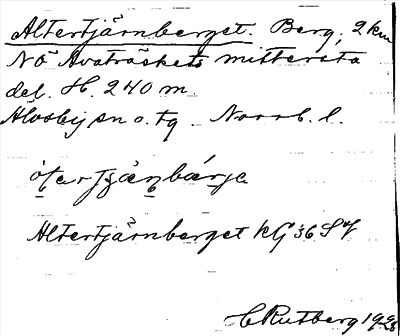 Altertjärnberget. Berg, 2 km
NÖ Avaträskets mittersta
del. H. 240 m.
Älvsby sn o. tg Norrb. l.
ó̱tertjä̱nbáṟje
Altertjärnberget kG 36 SV
C Rutberg 1926